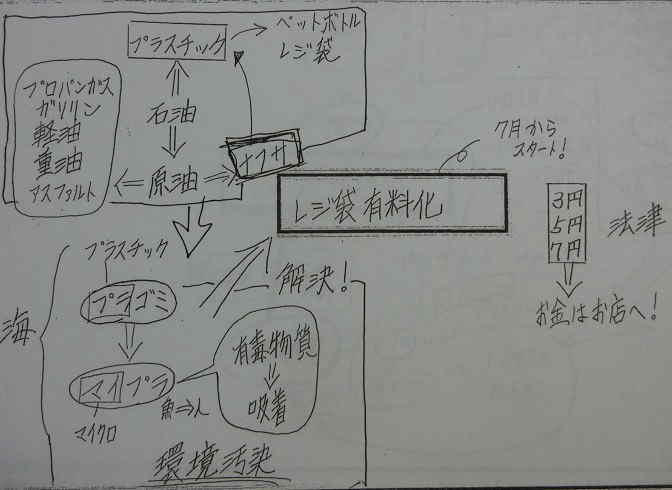 プラスチック
ペットボトル
レジ袋
石油
プロパンガス
ガソリン
軽油
重油
アスファルト
原油
ナフサ
7月から
スタート!
レジ袋有料化
3円
5円
7円
法律
お金はお店へ!
プラスチック
プラゴミ
解決!
海
マイプラ
マイクロ
魚⇒人
有毒物質
吸着
環境汚染